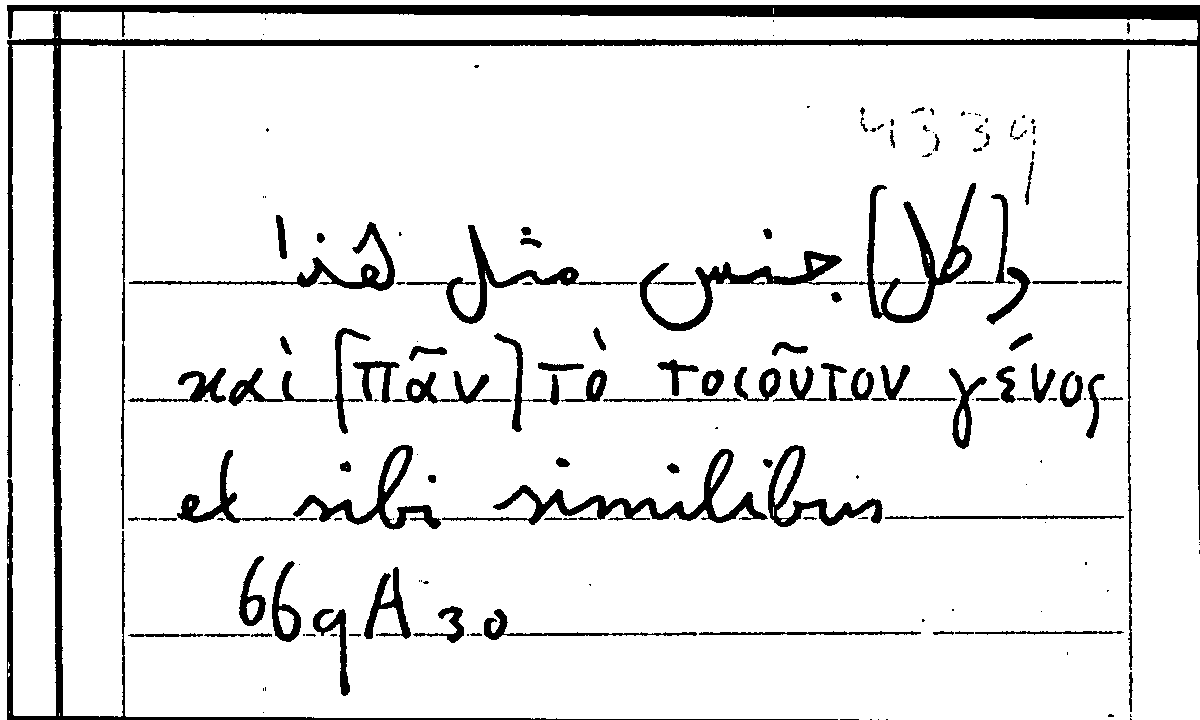 4339
و[كل] جنس مثل هذا
καὶ [πᾶν] τὸ τοιοῦτον γένος
et sibi similibus
669A30